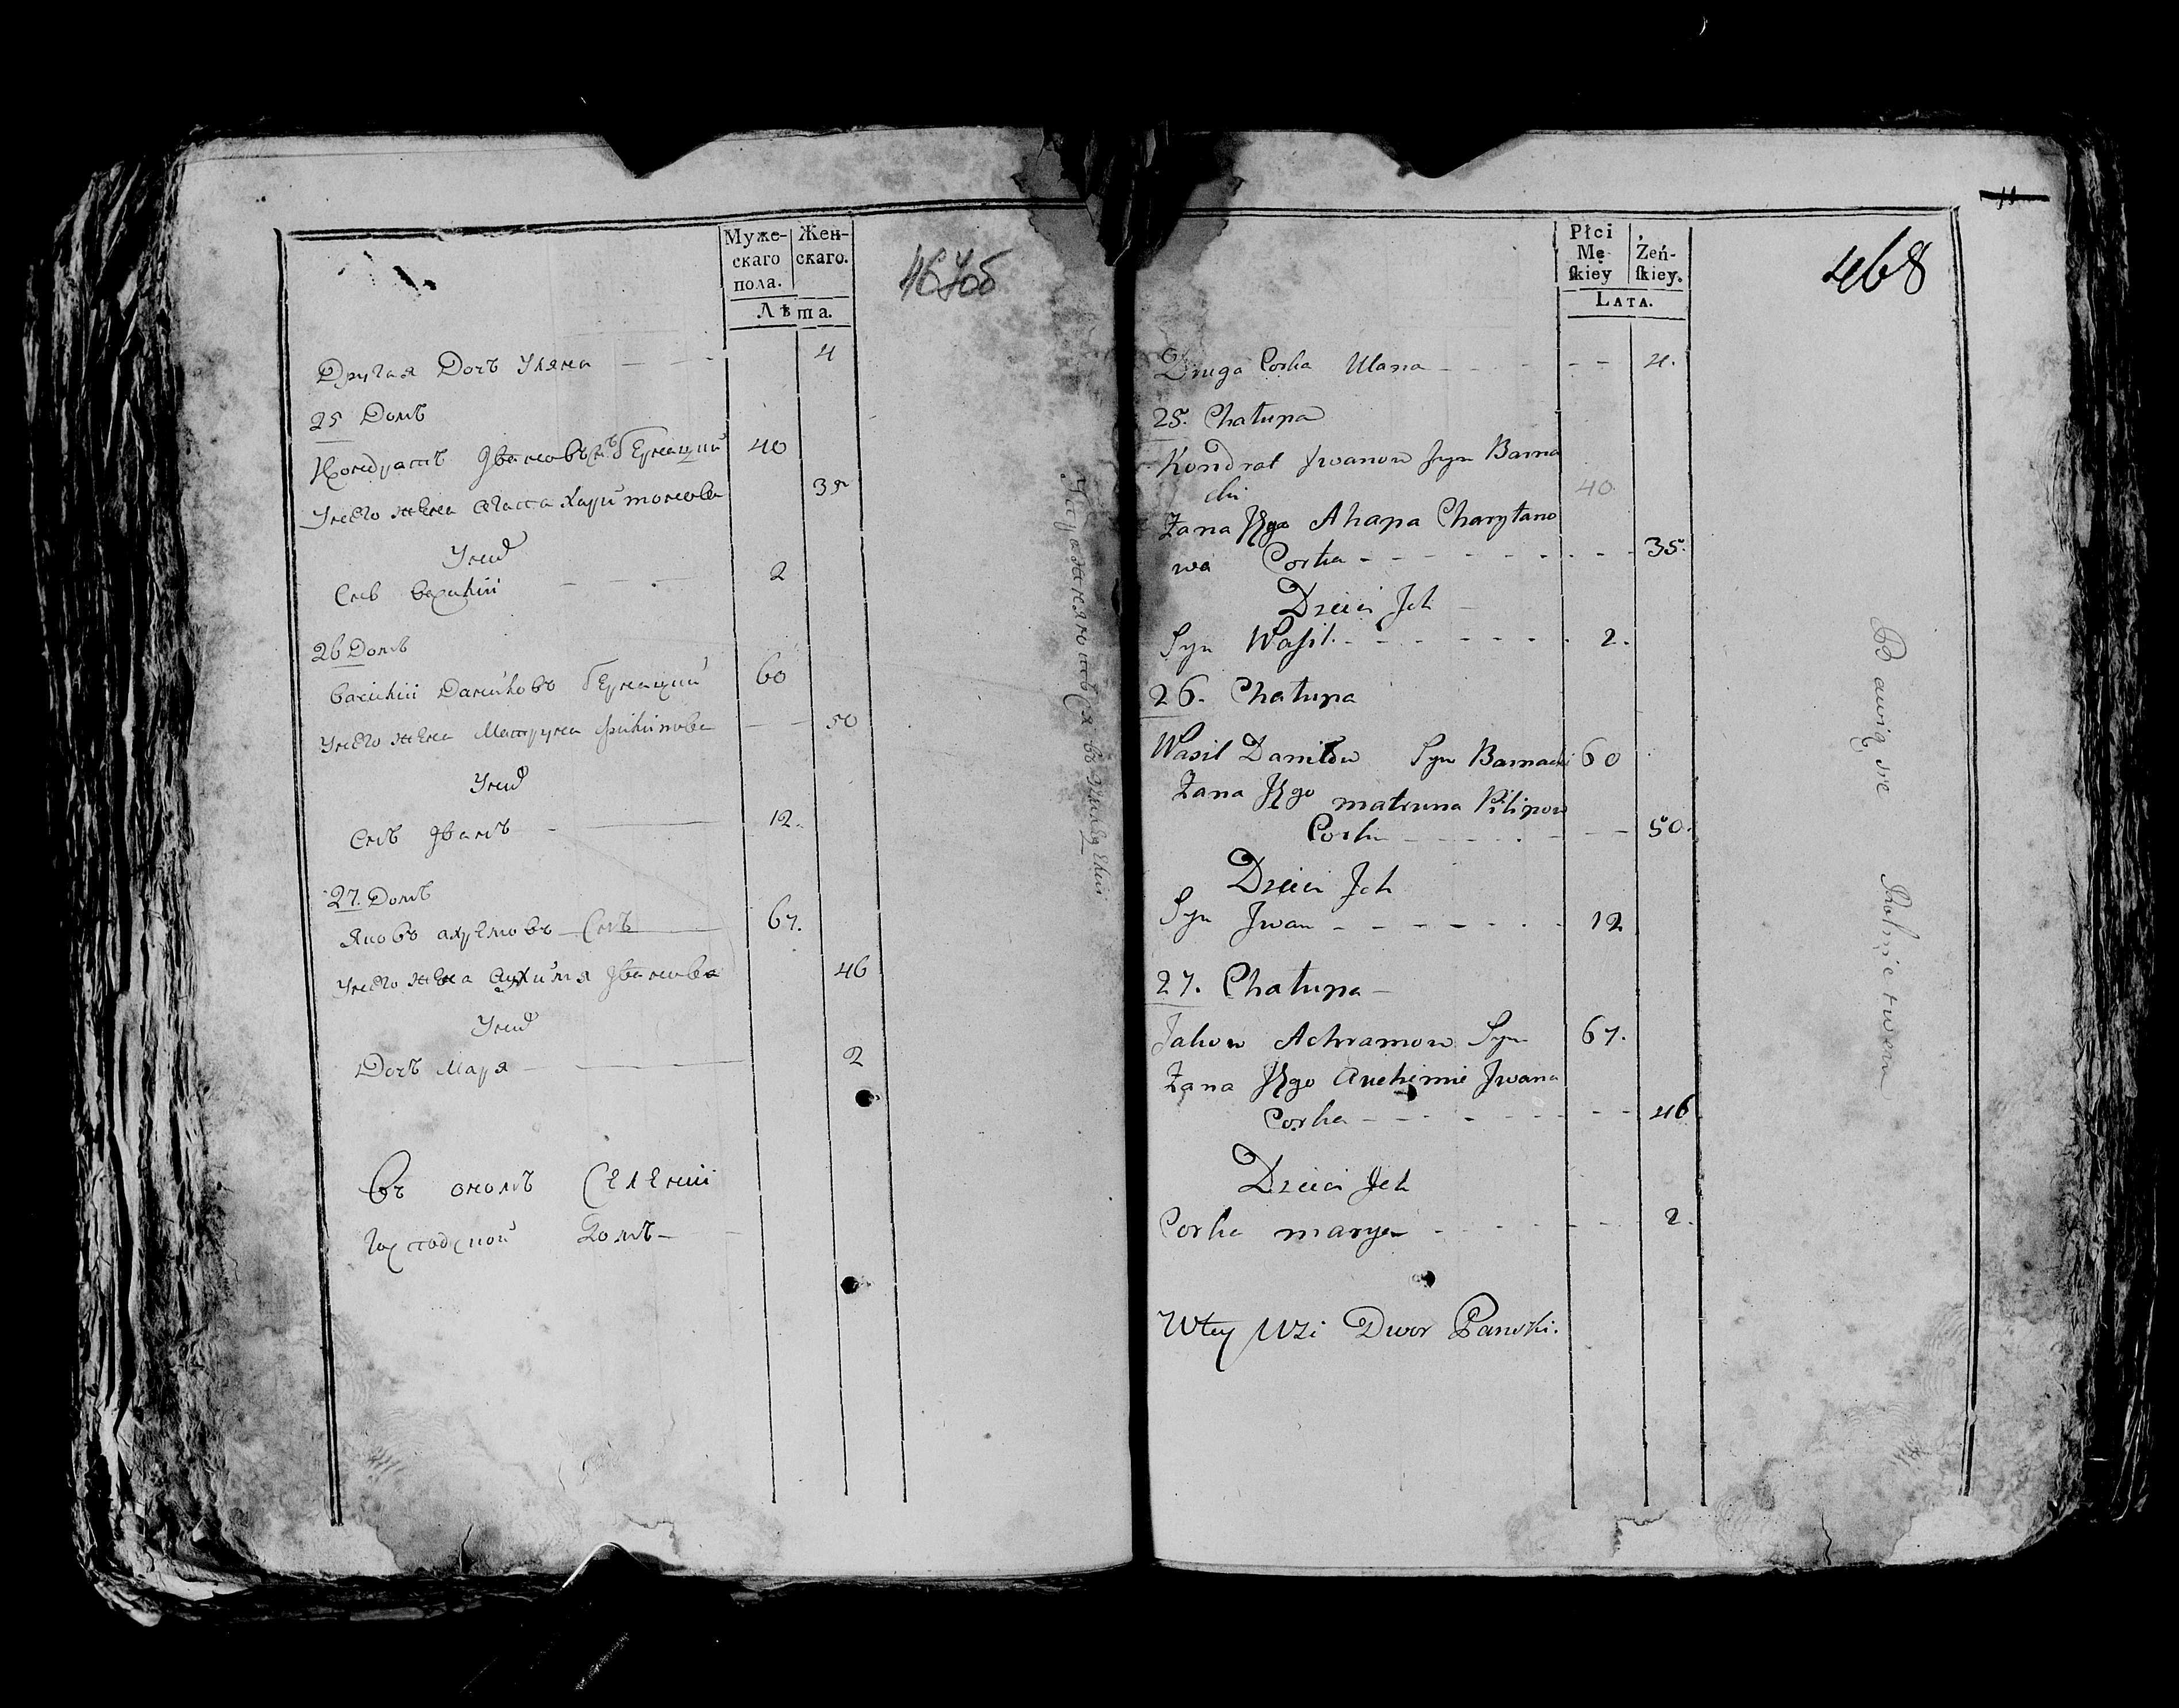 Муже-
скаго
пола.
Жен-
скаго.
Лѣта.
467об
Другая Дочъ Уляна 4
25 Домъ
Кондратъ Ивановъ Сынъ Бернацкий 40
Унего жена Агапа Харитонова 35
Уних
Снъ Василий 2
26 Домъ
Василий Даниловъ Бернацкий 60
Унего жена Матруна Филипова 50
Уних
Снъ Иванъ 12.
27. Домъ
Яковъ Ахремовъ Снъ 67.
Унего жена Аухимя Иванова 46
Уних
Дочъ Маря 2
Въ ономъ Селении
Господской Домъ
Упражняются въ
Płci
Mę-
skiey
Żeń-
skiey.
LATA.
11
468
Druga Corka Ulana - - - - - 4.
25. Chałupa
Kondrat Jwanow Syn Barna
cki 40
Zana Jego Ahapa Charytano
wa Corka - - - - - - - - 35.
Dzieci Jch
Syn Wasil - - - - - - - 2.
26. Chałupa
Wasil Daniłow Syn Barnacki 60
Zana Jego matruna Pilipow
Corka - - - - - - - 50.
Dzieci Jch
Syn Jwan - - - - - - - 12
27. Chałupa -
Jakow Achramow Syn 67.
Zana Jego Auchimie Jwana
Corka - - - - - - - 46
Dzieci Jch
Corka marya - - - - - - 2.
Wtey Wsi Dwor Panski.
Bawią sie Rolnictwem